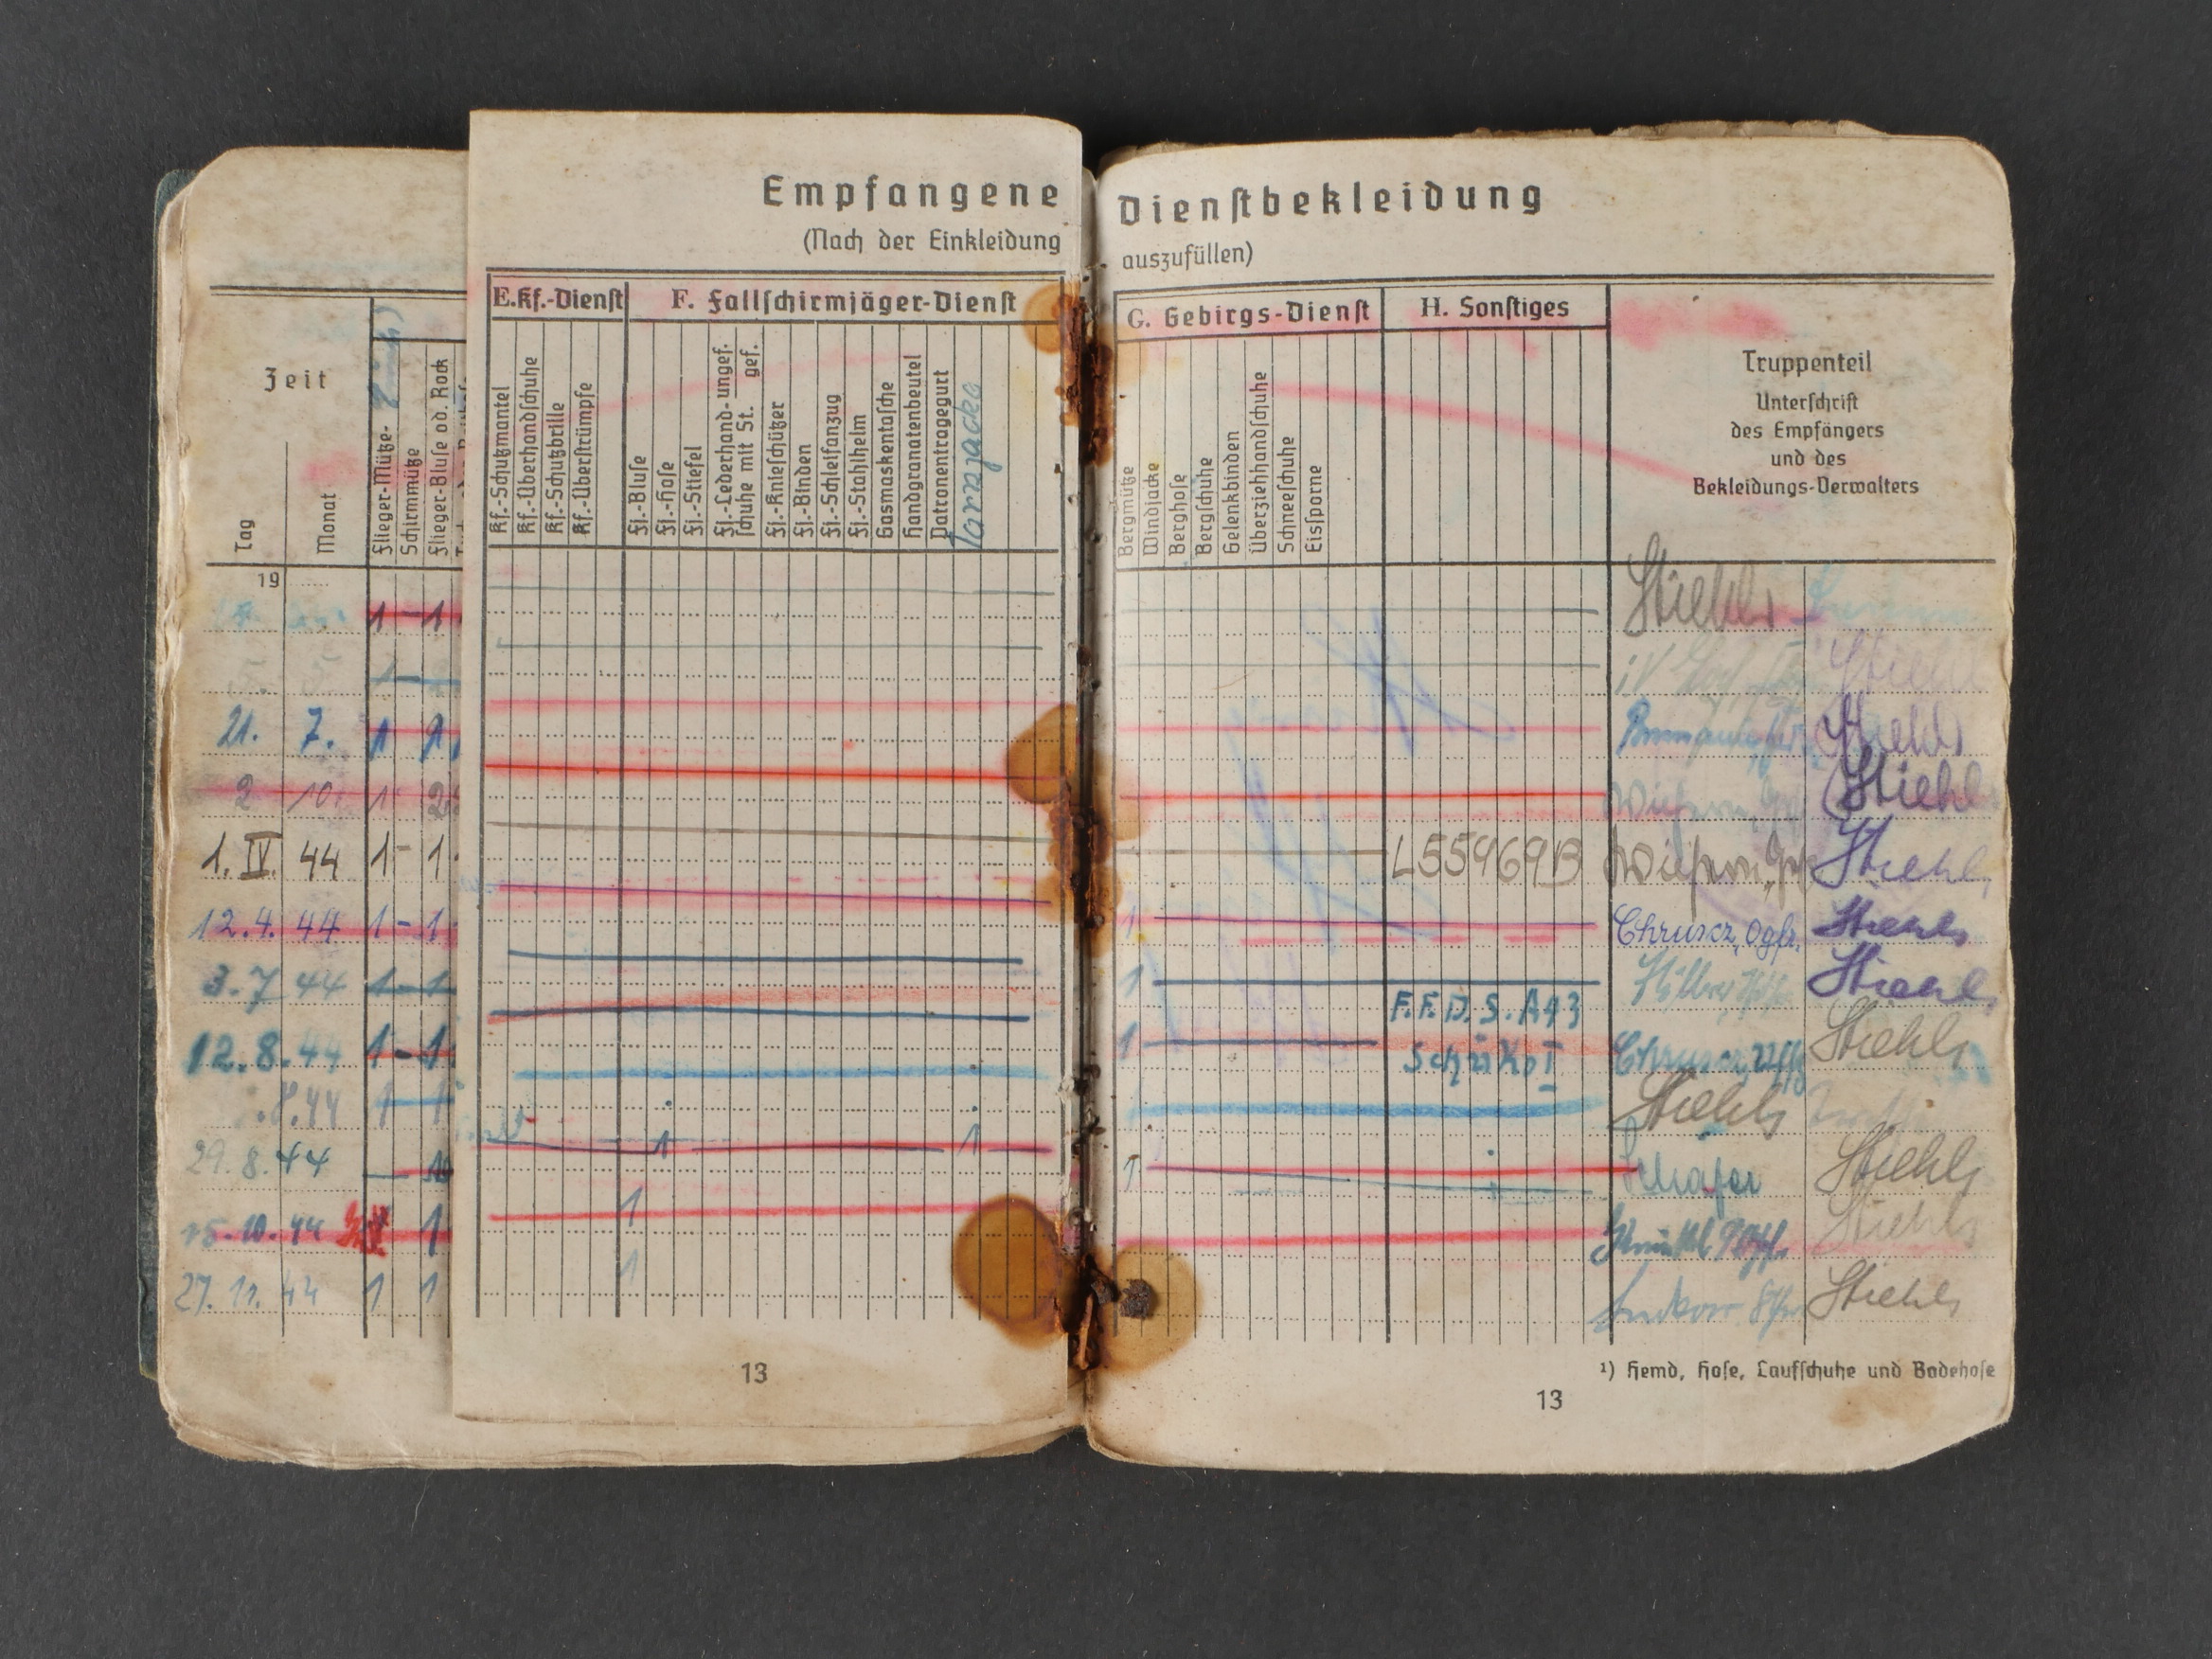 Empfangene Dienstbekleidung
(Nach der Einkleidung auszufüllen)
Zeit
Tag
Monat
Flieger-Mütze-
Schirmmütze
Flieger-Bluse od. Rock
E. Kf.-Dienst
Kf.-Schutzmantel
Kf.-Überhandschuhe
Kf.-Schutzbrille
Kf.-Überstrümpfe
F. Fallschirmjäger-Dienst
Fj.-Bluse
Fj.-Hose
Fj.-Stiefel
Fj.-Lederhand- ungef.
schuhe mit St. gef.
Fj.-Knieschützer
Fj.-Binden
Fj.-Schleifanzug
Fj.-Stahlhelm
Gasmaskentasche
Handgranatenbeutel
Patronentragegurt
Tarnjacke
G. Gebirgs-Dienst
Bergmütze
Windjacke
Berghose
Bergschuhe
Gelenkbinden
Überziehhandschuhe
Schneeschuhe
Eissporne
H. Sonstiges
Truppenteil
Unterschrift
des Empfängers
und des
Bekleidungs-Verwalters
19
1 - 1 Stiehl
1
21. 7. 1 Stiehl
2 10. 1 2 Stiehl
1. IV. 44 1 - 1 L55969B Stiehl
12.4. 44 1 - 1 1 Chruscz, Ogfr. Stiehl
3. 7 44 1 - 1 1 Stiehl
F.F.D.S. A43
12.8.44 1 - 1 1 Schü Ko I Stiehl
.8.44 1 1 Stiehl
29. 8. 44 1 1 1 Schäfer Stiehl
15.10.44 1 1 Stiehl
27. 11. 44 1 1 1 Stiehl
¹) Hemd, Hose, Laufschuhe und Badehose
13
13